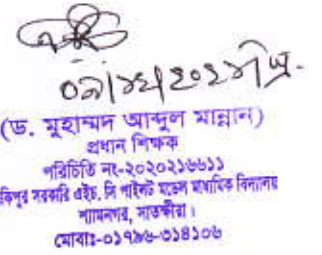 (ড. মুহাম্মদ আব্দুল মান্নান)
প্রধান শিক্ষক
পরিচিতি নং-২০২০২১৬৬১১
কিপুর সরকারি এইচ, সি পাইলট মডেল মাধ্যমিক বিদ্যালয়
শ্যামনগর, সাতক্ষীরা।
মোবাঃ-০১৭৯৬-৩১৪১০৬